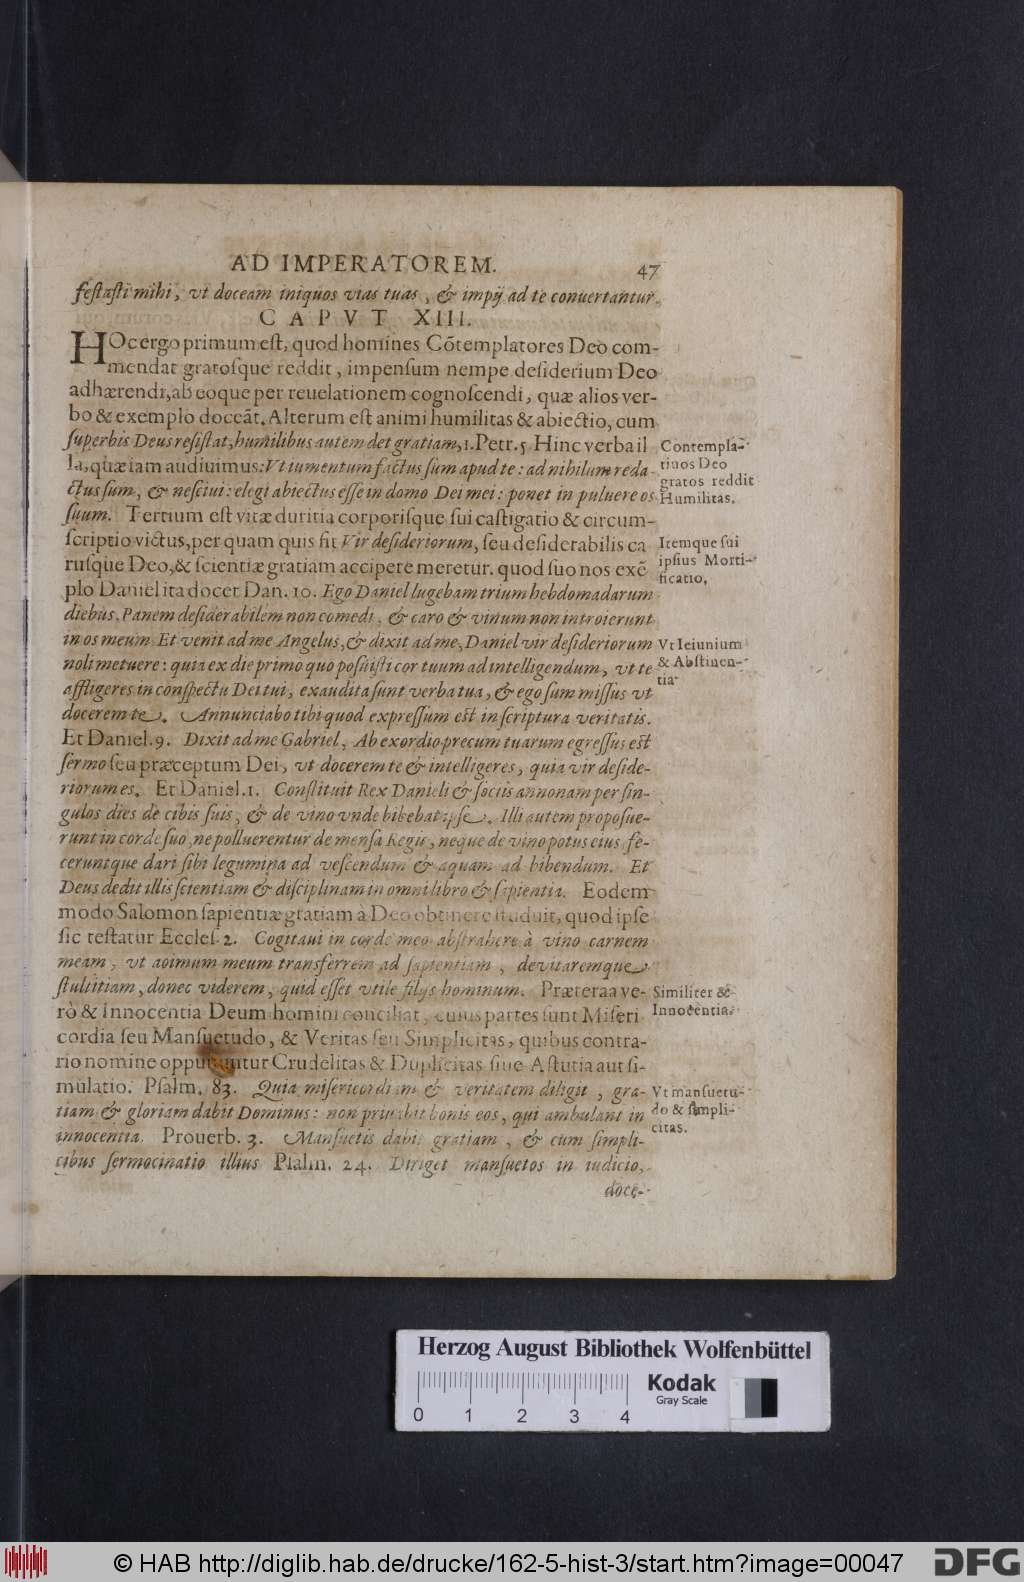 AD IMPERATOREM. 47
feſtaſti mihi, vt doceam iniquos vias tuas, & impij ad te conuertantur.
CAPVT XIII.
HOc ergo primum eſt, quod homines Cõtemplatores Deo com-
mendat gratoſque reddit, impenſum nempe deſiderium Deo
adhærendi, ab eoque per reuelationem cognoſcendi, quæ alios ver-
bo & exemplo doceãt. Alterum eſt animi humilitas & abiectio, cum
ſuperbis Deus reſiſtat, humilibus autem det gratiam, 1. Petr. 5 Hinc verba il
la, quæ iam audiuimus: Vt iumentum factus ſum apud te: ad nihilum reda-
ctus ſum, & neſciui: elegi abiectus eſſe in domo Dei mei: ponet in puluere os
ſuum. Tertium eſt vitæ duritia corporiſque ſui caſtigatio & circum-
ſcriptio victus, per quam quis fit Vir deſideriorum, ſeu deſiderabilis ca
ruſque Deo, & ſcientiæ gratiam accipere meretur. quod ſuo nos exẽ
plo Daniel ita docet Dan. 10. Ego Daniel lugebam trium hebdomadarum
diebus. Panem deſiderabilem non comedi, & caro & vinum non introierunt
in os meum Et venit ad me Angelus, & dixit ad me, Daniel vir deſideriorum
noli metuere: quia ex die primo quo poſuiſti cor tuum ad intelligendum, vt te
affligeres in conſpectu Dei tui, exaudita ſunt verba tua, & ego ſum miſſus vt
docerem te. Annunciabo tibi quod expreſſum eſt in ſcriptura veritatis.
Et Daniel. 9. Dixit ad me Gabriel, Ab exordio precum tuarum egreſſus eſt
ſermo ſeu præceptum Dei, vt docerem te & intelligeres, quia vir deſide-
riorum es. Et Daniel. 1. Conſtituit Rex Danieli & ſociis annonam per ſin-
gulos dies de cibis ſuis, & de vino vnde bibebat ipſe. Illi autem propoſue-
runt in corde ſuo, ne polluerentur de menſa Regis, neque de vino potus eius, fe-
ceruntque dari ſibi legumina ad veſcendum & aquam ad bibendum. Et
Deus dedit illis ſcientiam & diſciplinam in omni libro & ſapientia. Eodem
modo Salomon ſapientiæ gratiam à Deo obtinere ſtuduit, quod ipſe
ſic teſtatur Eccleſ. 2. Cogitaui in corde meo abſtrahere à vino carnem
meam, vt animum meum transferrem ad ſapientiam, devitaremque
ſtultitiam, donec viderem, quid eſſet vtile filijs hominum. Præterea ve-
rò & innocentia Deum homini conciliat, cuius partes ſunt Miſeri
cordia ſeu Manſuetudo, & Veritas ſeu Simplicitas, quibus contra-
rio nomine opputantur Crudelitas & Duplicitas ſiue Aſtutia aut ſi-
mulatio. Pſalm. 83. Quia miſericordiam & veritatem diligit, gra-
tiam & gloriam dabit Dominus: non priuabit bonis eos, qui ambulant in
innocentia. Prouerb. 3. Manſuetis dabit gratiam, & cum ſimpli-
cibus ſermocinatio illius Pſalm. 24. Diriget manſuetos in iudicio,
doce-
Contempla-
tiuos Deo
gratos reddit
Humilitas.
Itemque ſui
ipſius Morti-
ficatio,
Vt Ieiunium
& Abſtinen-
tia
Similiter &
Innocentia.
Vt manſuetu-
do & ſimpli-
citas.
Herzog August Bibliothek Wolfenbüttel
Kodak
Gray Scale
0 1 2 3 4
© HAB http://diglib.hab.de/drucke/162-5-hist-3/start.htm?image=00047
DFG